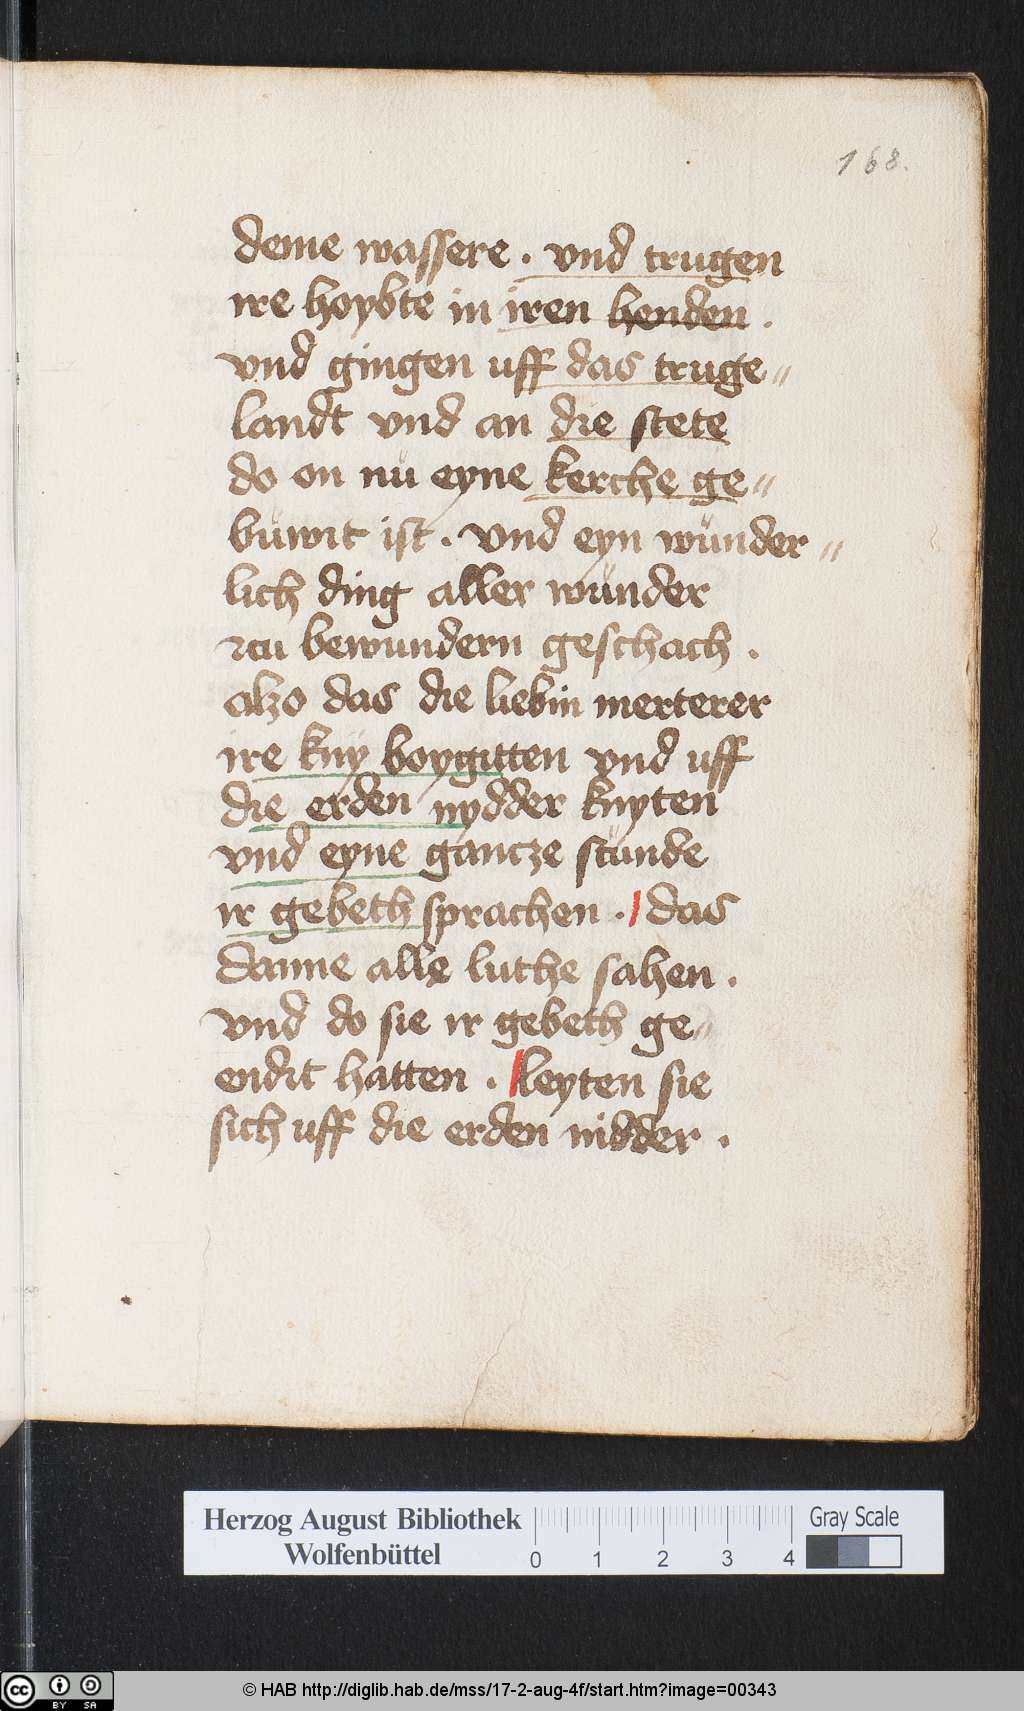 168.
deme wassere . vnd trugen
ire hoybte in iren henden .
vnd gingen uff das truge //
landt vnd an die stete
do on nü eyne kerche ge //
büwit ist . vnd eyn wünder //
lich ding aller wünder
zcu bewundern geschach .
alzo das die liebin merterer
ire kny boygitten vnd uff
die erden nydder knyten
vnd eyne gancze stünde
ir gebeth sprachen . das
danne alle luthe sahen .
vnd do sie ir gebeth ge //
endit hatten . leyten sie
sich uff die erden nidder .
Herzog August Bibliothek
Wolfenbüttel
0 1 2 3 4
Gray Scale
cc BY SA
© HAB http://diglib.hab.de/mss/17-2-aug-4f/start.htm?image=00343